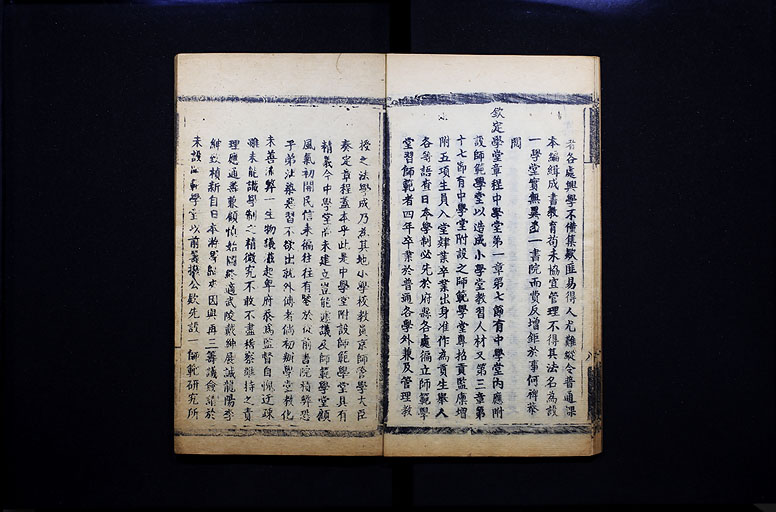 者各處興學不僅集欵匪易得人尤難縱令普通課
本編輯成書教育苟未協宜管理不得其法名為設
一學堂實無異立一書院而費反增鉅於事何裨恭
閱
欽定學堂章程中學堂第一章第七節有中學堂內應附
設師範學堂以造成小學堂教習人材又第三章第
十七節有中學堂附設之師範學堂專招貢監廩增
附五項生員入堂肄業卒業出身准作為貢生舉人
各等語查日本學制必先於府縣各處徧立師範學
堂習師範者四年卒業於普通各學外兼及管理教
授之法學成乃為其地小學校教員京師管學大臣
奏定章程蓋本乎此是中學堂附設師範學堂具有
精義今中學堂尚未建立豈能遽議及師範學堂顧
風氣初開民信未徧往往有鑒於從前書院積弊恐
子弟沾染惡習不欲出就外傅者倘初辦學堂教化
未善流弊一生物議蠭起卑府忝為監督自愧迂疎
雖未能識學制之精微究不敢不盡稽察維持之責
理應通籌兼顧慎始圖終適武陵戴紳展誠龍陽李
紳致楨新自日本游學歸來因與再三籌議僉謂於
未設 學堂以前籌撥公欵先設一師範研究所